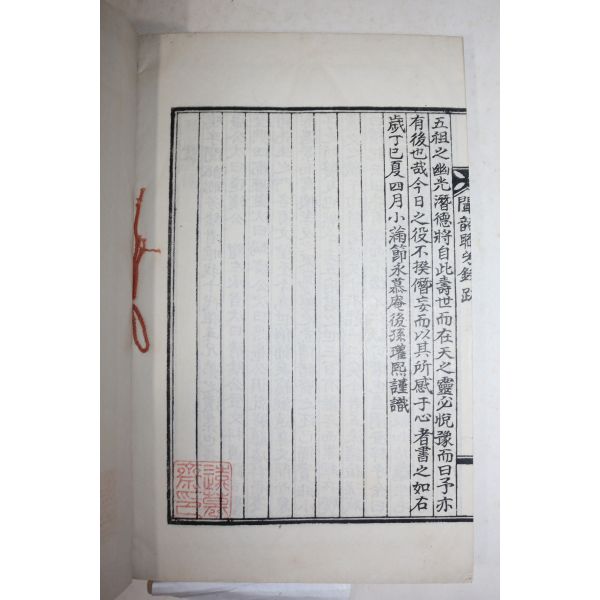 五祖之幽光潛德將自此壽世而在天之靈必悅豫而曰予亦
有後也哉今日之役不揆僭妄而以其所感于心者書之如右
歲丁巳夏四月小滿節永慕庵後孫瓘熙謹識
聞韶聯芳錄 跋